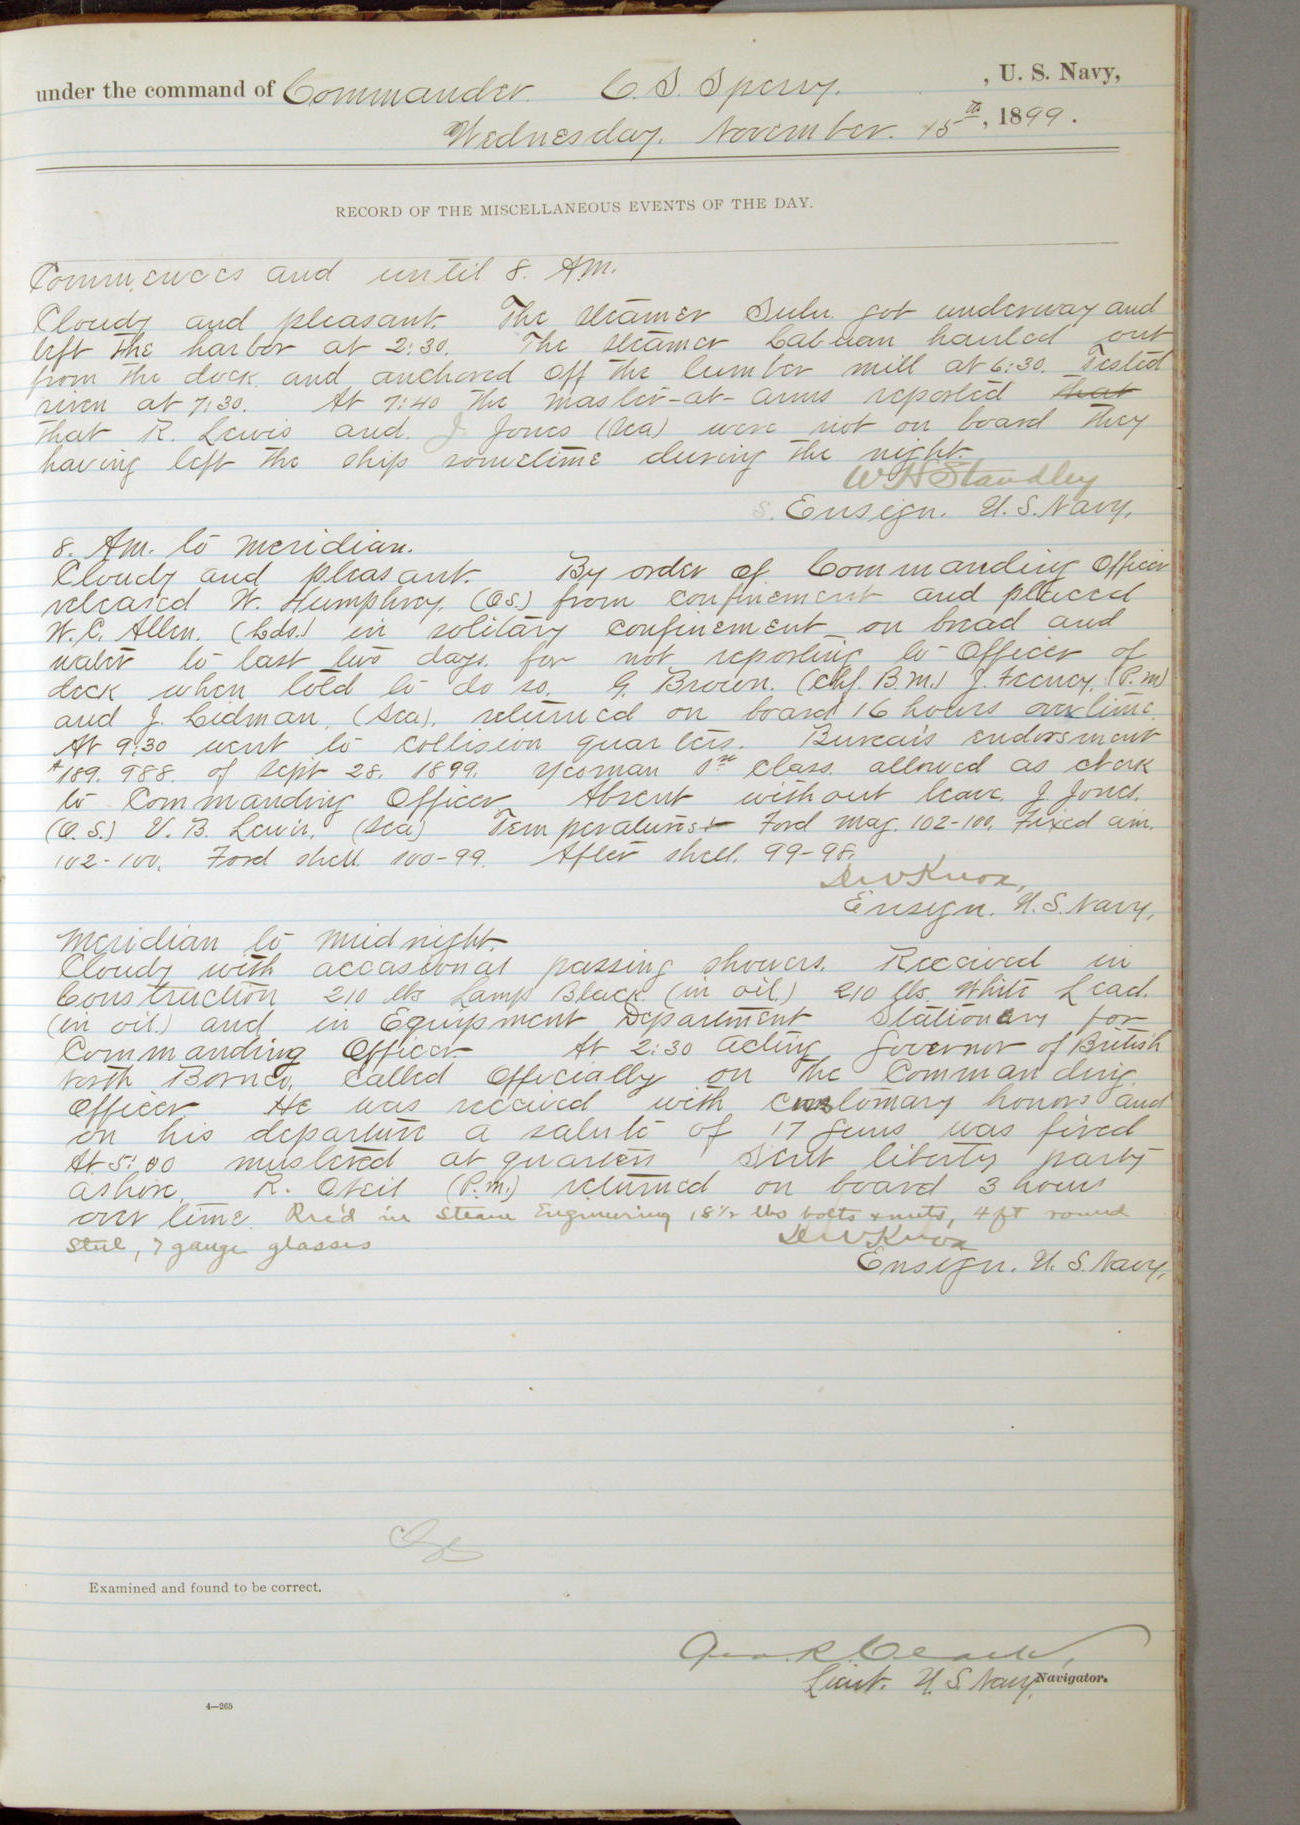 under the command of Commander. C. S. Sperry. , U. S. Navy,
Wednesday. November. 15th, 1899.
RECORD OF THE MISCELLANEOUS EVENTS OF THE DAY.
Commences and until 8. AM.
Cloudy and pleasant. The steamer Sulu got underway and
left the harbor at 2:30. The steamer Labuan hauled out
from the dock and anchored off the lumber mill at 6:30. Tested
siren at 7:30. At 7:40 the master-at-arms reported that
that R. Lewis and J. Jones (Sea) were not on board they
having left the ship sometime during the night.
W H Standley
Ensign. U. S. Navy.
8. Am. to meridian.
Cloudy and pleasant. By order of Commanding Officer
released W. Humphrey. (O.S.) from confinement and placed
W. C. Allen. (Lds.) in solitary confinement on bread and
water to last two days for not reporting to Officer of
deck when told to do so. G. Brown. (Chf. B.M.) J. Feeney. (P.M)
and J. Lidman. (Sea). returned on board 16 hours overtime.
At 9:30 went to collision quarters. Bureau's endorsment
#189.988. of Sept 28. 1899. Yeoman 1st Class. allowed as clerk
to Commanding Officer. Absent without leave. J. Jones.
(O.S.) V. B. Lewis. (Sea) Temperatures:- Ford mag. 102-100. Fixed am.
102-100. Ford shell 100-99. After shell. 99-98.
D W Knox,
Ensign. U. S. Navy.
Meridian to midnight.
Cloudy with occasional passing showers. Received in
Construction 210 lbs Lamp Black. (in oil.) 210 lbs. White Lead.
(in oil.) and in Equipment Department Stationery for
Commanding Officer. At 2:30 acting Governor of British
North Borneo, called Officially on the Commanding
Officer. He was received with customary honors and
on his departure a salute of 17 guns was fired
At 5:00 mustered at quarters Sent liberty party
ashore. R. O'Neil (P.M.) returned on board 3 hours
over time. Rec'd in Steam Engineering 18½ lbs bolts & nuts, 4 ft round
steel, 7 gauge glasses
D W Knox
Ensign. U. S. Navy.
Examined and found to be correct.
Geo. R. Clark,
Lieut. U. S. Navy, Navigator.
4—265